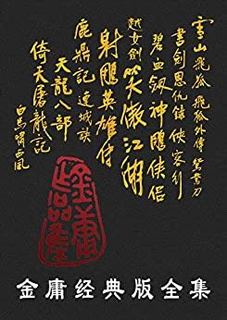 雪山飛狐 飛狐外傳 鴛鴦刀
書劍恩仇錄 俠客行
碧血劍 神鵰俠侶
越女劍 笑傲江湖
射鵰英雄傳
鹿鼎記 連城訣
天龍八部
倚天屠龍記
白馬嘯西風
金庸作品集
金庸经典版全集